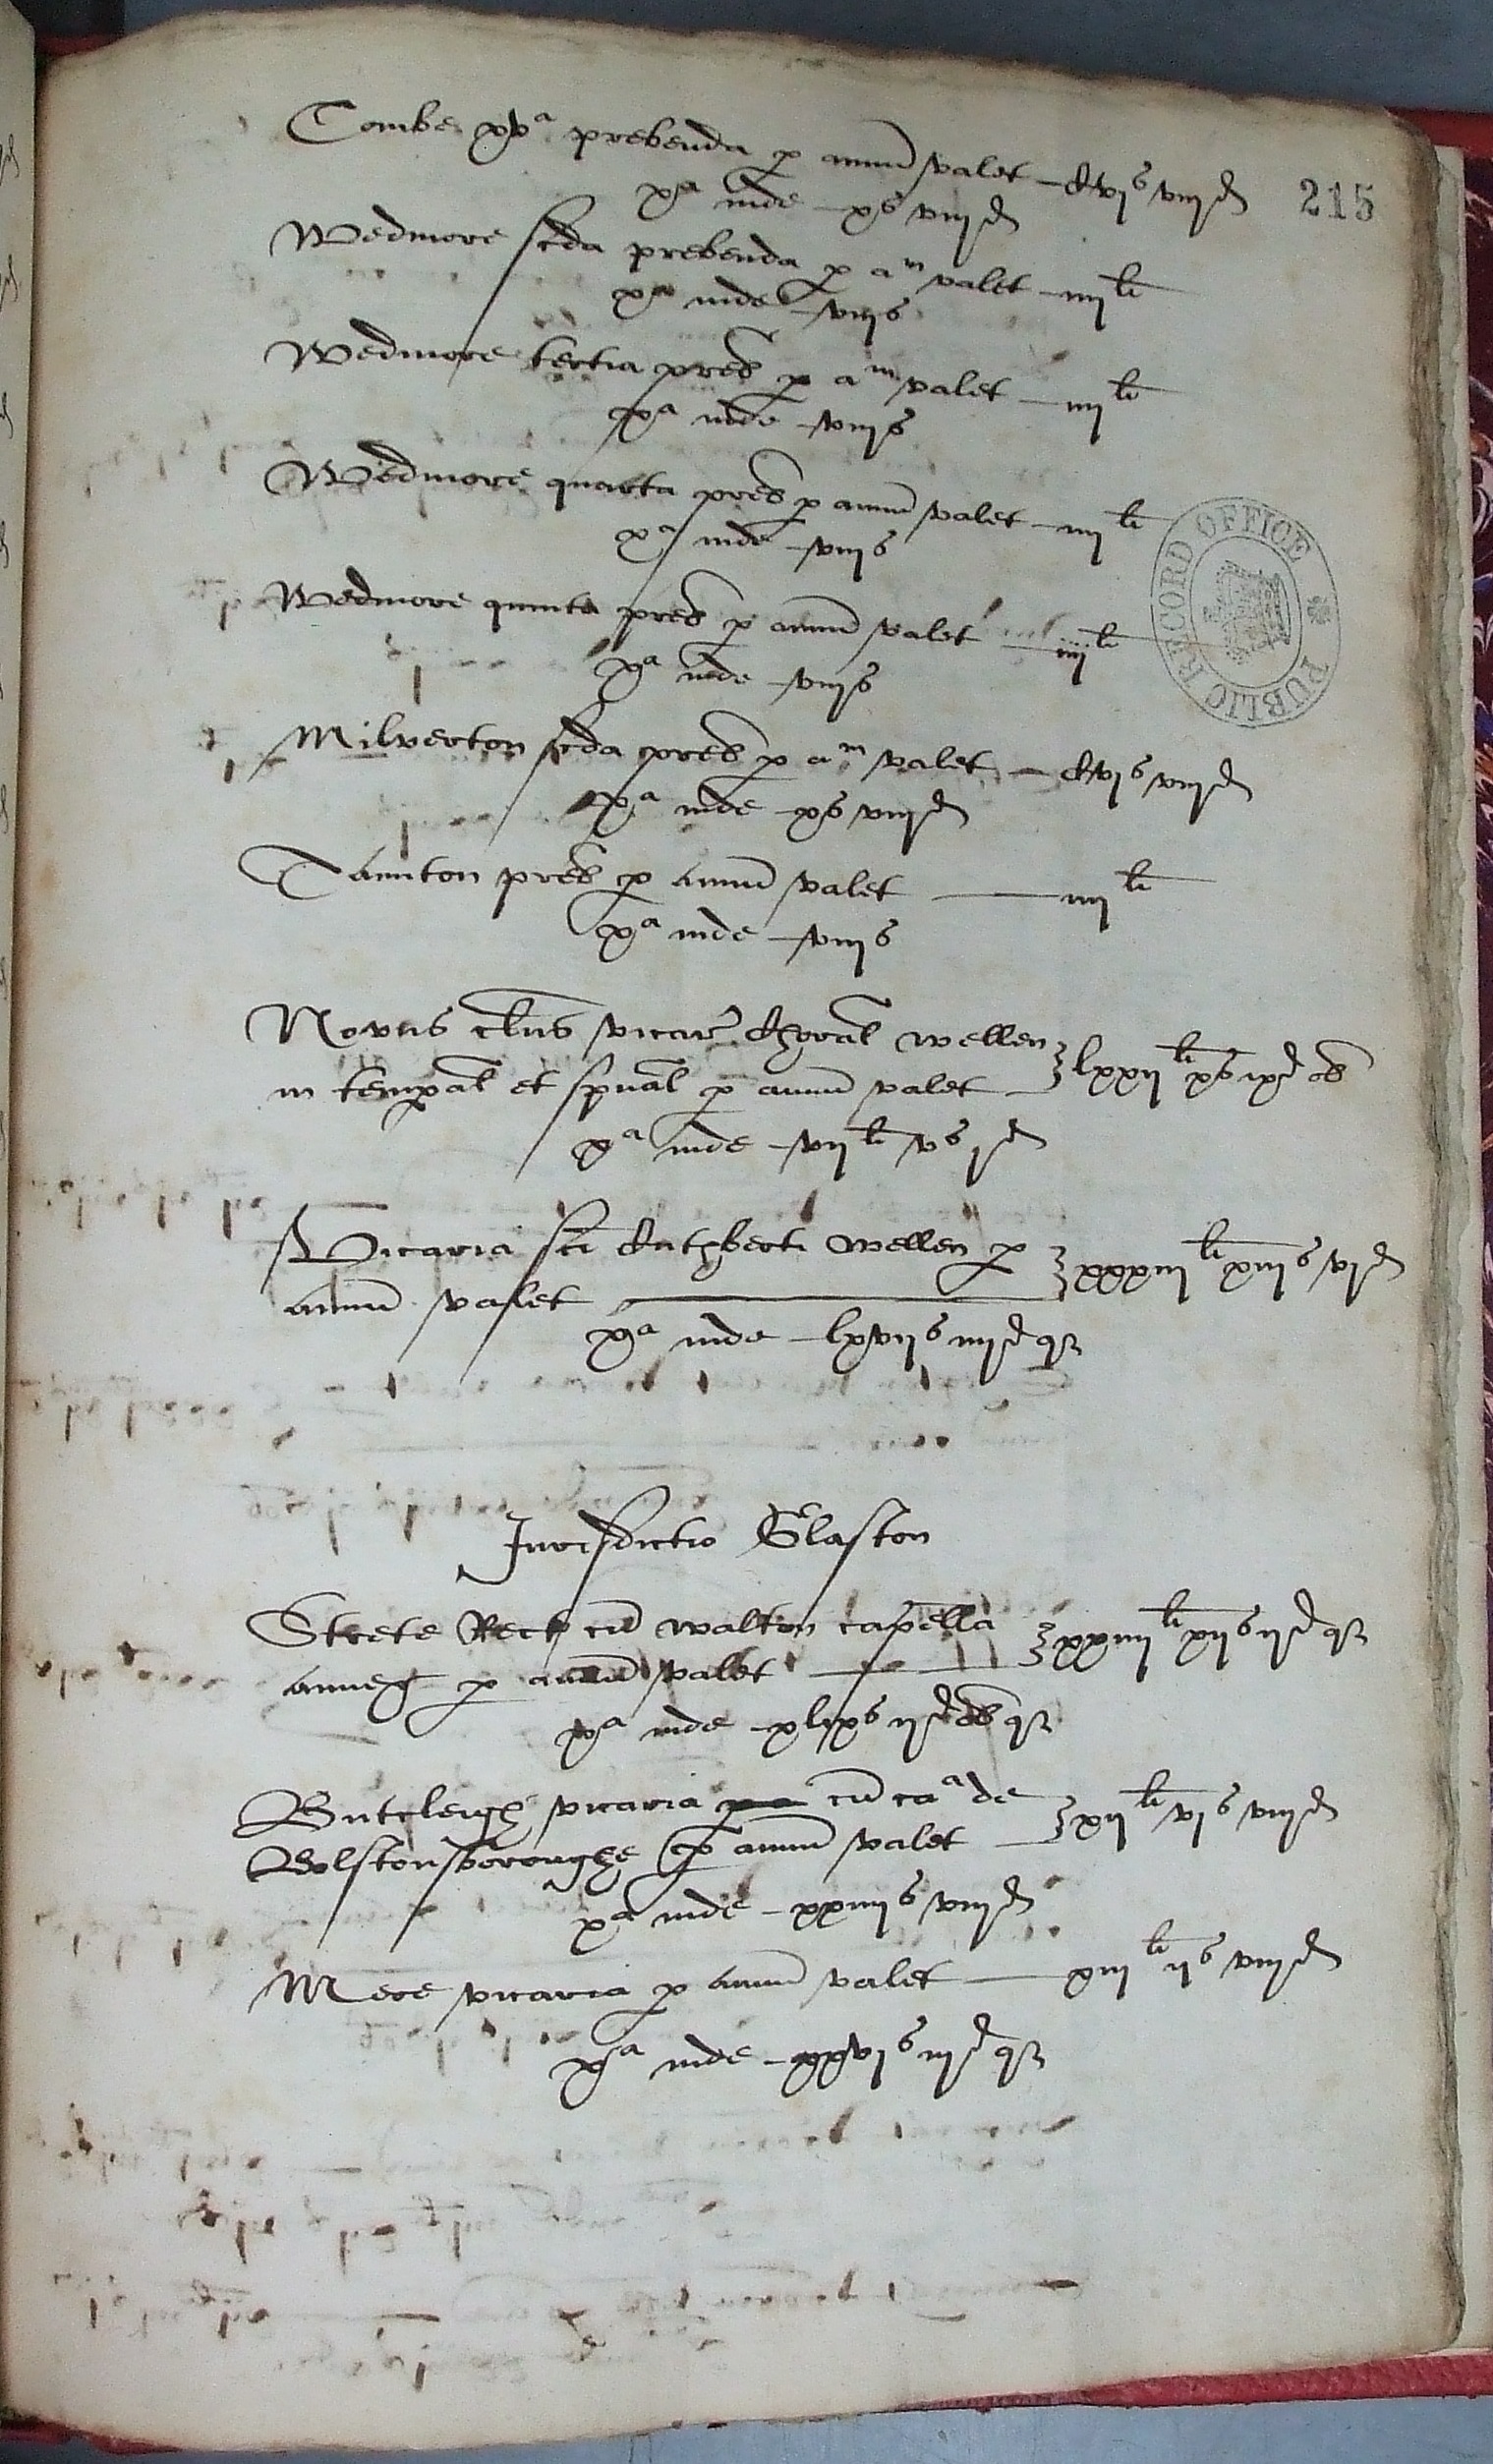 Combe xva prebenda p annu valet – cvjs viijd
215
xa inde – xs viijd
Wedmore scda prebenda p am valet – iiijli
xa inde – viijs
Wedmore tertia preb p am valet – iiijli
xa inde – viijs
Wedmore quarta preb p annu valet – iiijli
xa inde – viijs
Wedmore quinta preb p annu valet – iiijli
xa inde – viijs
Milverton scda preb p am valet – cvjs viijd
xa inde – xs viijd
Taunton preb p annu valet – iiijli
xa inde – viijs
Novus clus vicar choral wellen
in tempal et spual p annu valet – lxxijli xs ixd ob
xa inde – vijli vs jd
Vicaria sci Cuthberti wellen p
annu valet – xxxiijli xiijs vjd
xa inde – lxvijs iiijd qa
Jurisdictio Glaston
Strete Rect cu walton capella
annex p annu valet – xxiiijli xijs ijd qa
xa inde – xlixs ijd ob qa
Butcleugh vicaria cu ca de
Bolstonsboroughe p annu valet – xijli vjs viijd
xa inde – xxiiijs viijd
Mere vicaria p annu valet – xiijli ijs viijd
xa inde – xxvjs iijd qa
PUBLIC RECORD OFFICE